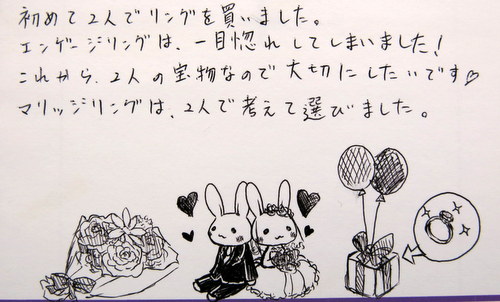 初めて2人でリングを買いました。
エンゲージリングは、一目惚れしてしまいました!
これから、2人の宝物なので大切にしたいです♡
マリッジリングは、2人で考えて選びました。